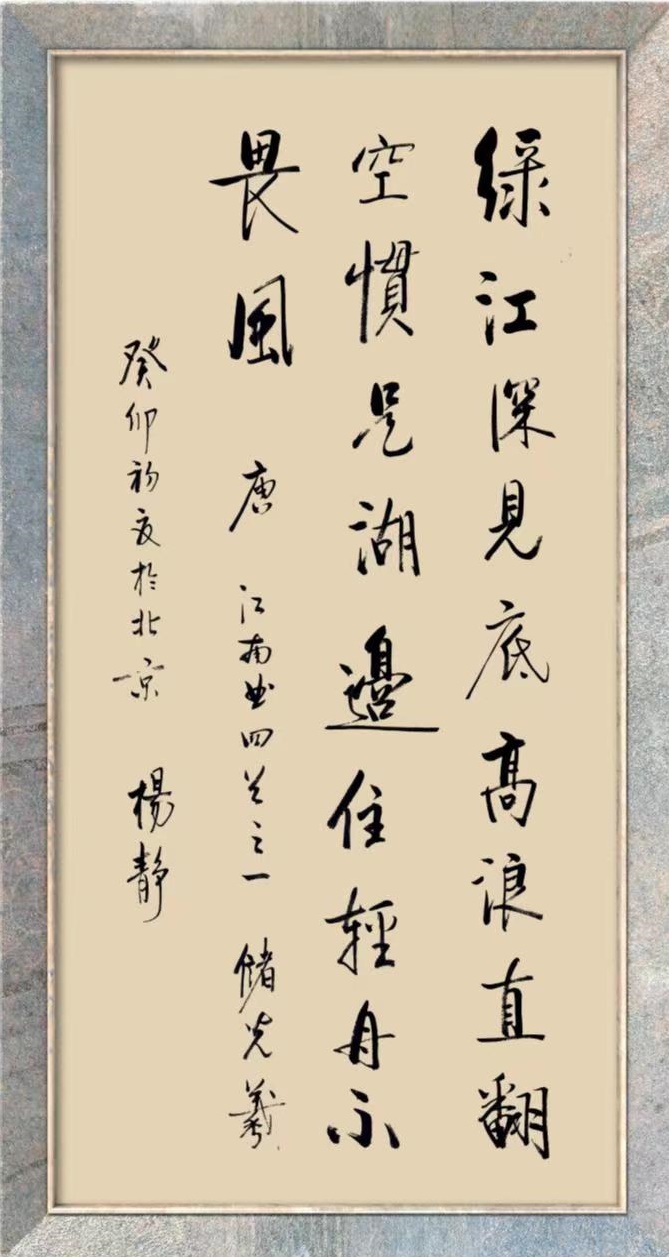 綵江深見底高浪直翻
空慣是湖邊住輕舟不
畏風 唐 江南曲四首之一 儲光羲
癸卯初夏於北京 楊静